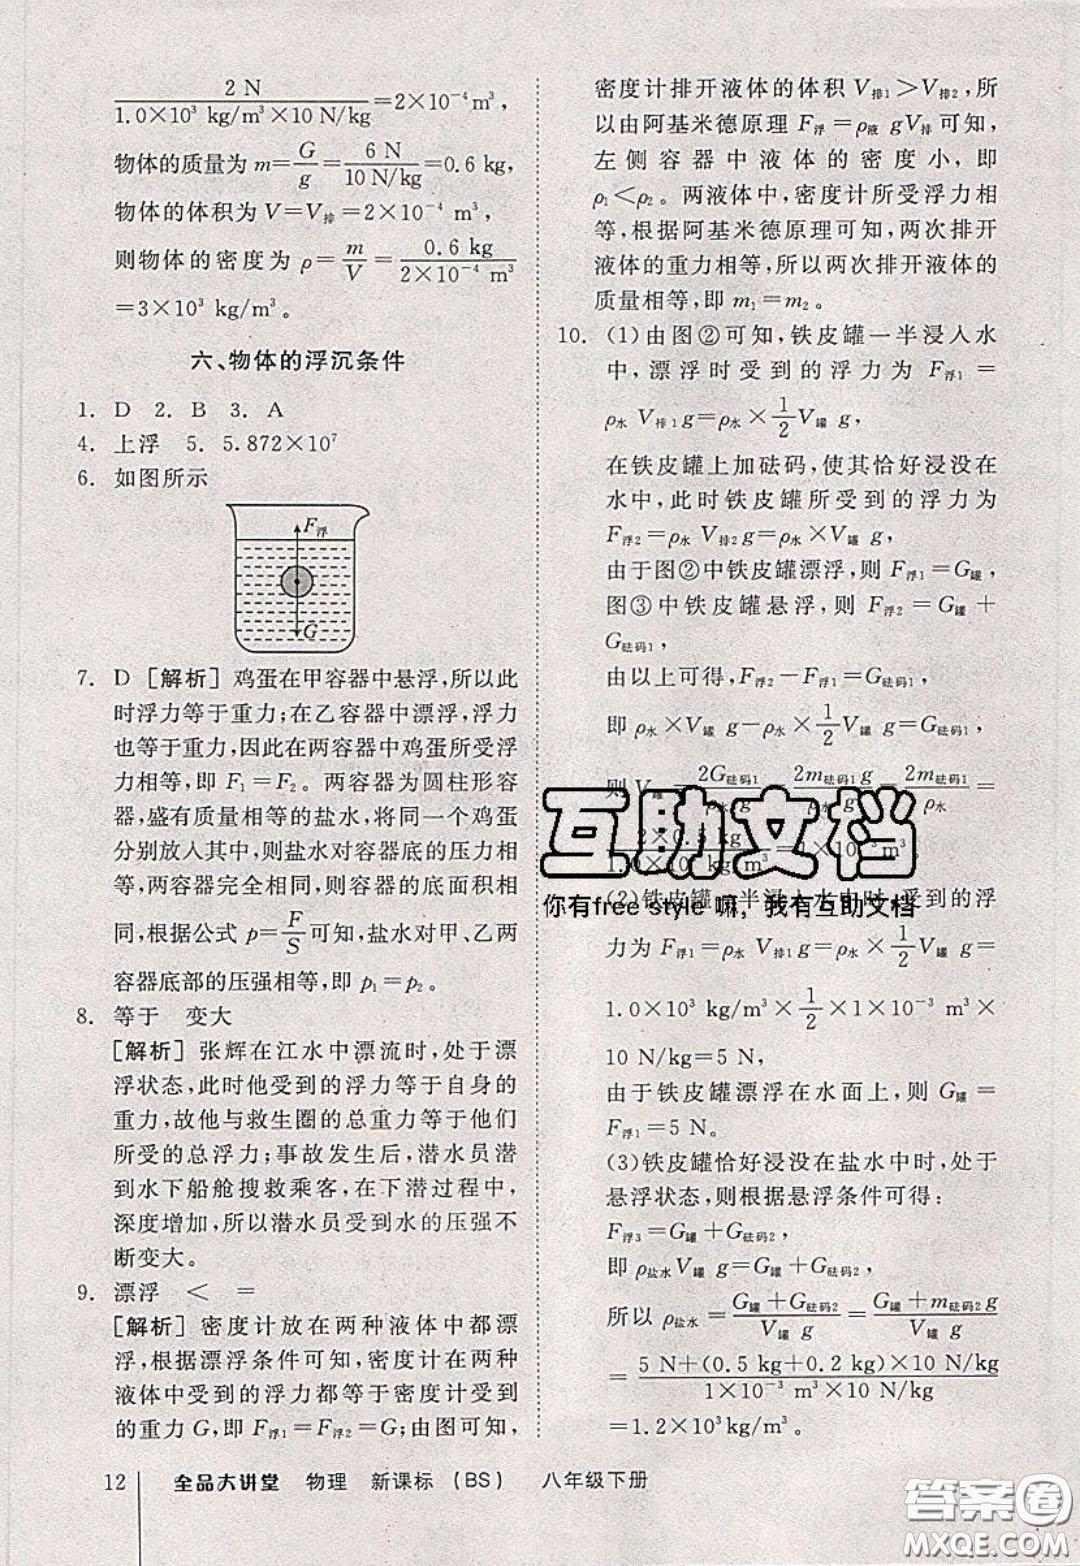 2 N/(1.0×10³ kg/m³×10 N/kg)=2×10⁻⁴ m³，
物体的质量为 m=G/g=6 N/(10 N/kg)=0.6 kg，
物体的体积为 V=V排=2×10⁻⁴ m³，
则物体的密度为 ρ=m/V=0.6 kg/(2×10⁻⁴ m³)
=3×10³ kg/m³。
六、物体的浮沉条件
1. D 2. B 3. A
4. 上浮 5. 5.872×10⁷
6. 如图所示
F浮
G
7. D [解析] 鸡蛋在甲容器中悬浮,所以此
时浮力等于重力;在乙容器中漂浮,浮力
也等于重力,因此在两容器中鸡蛋所受浮
力相等,即 F₁=F₂。两容器为圆柱形容
器,盛有质量相等的盐水,将同一个鸡蛋
分别放入其中,则盐水对容器底的压力相
等,两容器完全相同,则容器的底面积相
同,根据公式 p=F/S可知,盐水对甲、乙两
容器底部的压强相等,即 p₁=p₂。
8. 等于 变大
[解析] 张辉在江水中漂流时,处于漂
浮状态,此时他受到的浮力等于自身的
重力,故他与救生圈的总重力等于他们
所受的总浮力;事故发生后,潜水员潜
到水下船舱搜救乘客,在下潜过程中,
深度增加,所以潜水员受到水的压强不
断变大。
9. 漂浮 < =
[解析] 密度计放在两种液体中都漂
浮,根据漂浮条件可知,密度计在两种
液体中受到的浮力都等于密度计受到
的重力 G,即 F浮1=F浮2=G;由图可知,
密度计排开液体的体积 V排1>V排2,所
以由阿基米德原理 F浮=ρ液 gV排 可知,
左侧容器中液体的密度小,即
ρ₁<ρ₂。两液体中,密度计所受浮力相
等,根据阿基米德原理可知,两次排开
液体的重力相等,所以两次排开液体的
质量相等,即 m₁=m₂。
10. (1)由图②可知,铁皮罐一半浸入水
中,漂浮时受到的浮力为 F浮1=
ρ水 V排1 g=ρ水×1/2 V罐 g,
在铁皮罐上加砝码,使其恰好浸没在
水中,此时铁皮罐所受到的浮力为
F浮2=ρ水 V排2 g=ρ水×V罐 g,
由于图②中铁皮罐漂浮,则 F浮1=G罐,
图③中铁皮罐悬浮,则 F浮2=G罐+
G砝码1,
由以上可得,F浮2-F浮1=G砝码1,
即 ρ水×V罐 g-ρ水×1/2 V罐 g=G砝码1,
则 V罐 2G砝码1 2m砝码1 g 2m砝码1/ρ水=
1.0×10³ kg/m³=1×10⁻³ m³
(2)铁皮罐一半浸入水中时,受到的浮
力为 F浮1=ρ水 V排1 g=ρ水×1/2 V罐 g=
1.0×10³ kg/m³×1/2×1×10⁻³ m³×
10 N/kg=5 N,
由于铁皮罐漂浮在水面上,则 G罐=
F浮1=5 N。
(3)铁皮罐恰好浸没在盐水中时,处于
悬浮状态,则根据悬浮条件可得:
F浮3=G罐+G砝码2,
即 ρ盐水V罐 g=G罐+G砝码2,
所以 ρ盐水=(G罐+G砝码2)/(V罐 g)=(G罐+m砝码2 g)/(V罐 g)
=(5 N+(0.5 kg+0.2 kg)×10 N/kg)/(1×10⁻³ m³×10 N/kg)
=1.2×10³ kg/m³。
互助文档
你有free style 嘛，我有互助文档
12 全品大讲堂 物理 新课标 (BS) 八年级下册
答案圈
MXQE.COM